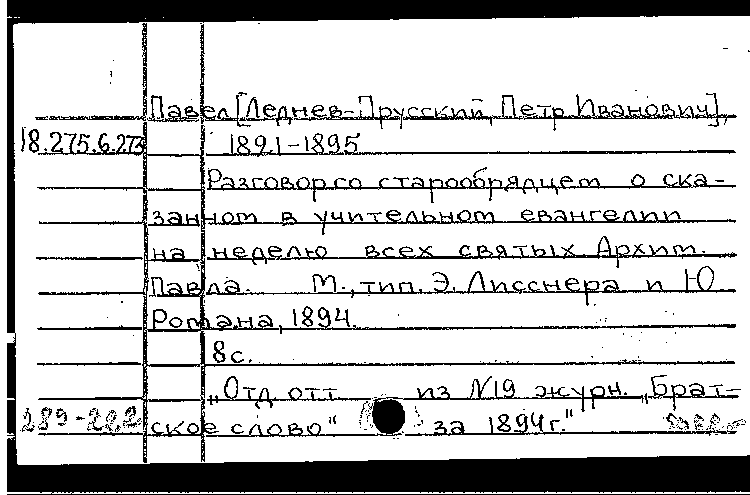 Павел [Леднев-Прусский, Петр Иванович],
18.275.6.273 1821-1895
Разговор со старообрядцем о ска-
занном в учительном евангелии
на неделю всех святых Архим.
Павла. М., тип. Э. Лисснера и Ю.
Романа, 1894.
8 с.
„Отд. отт. из N19 журн. „Брат-
ское слово“ за 1894 г.“